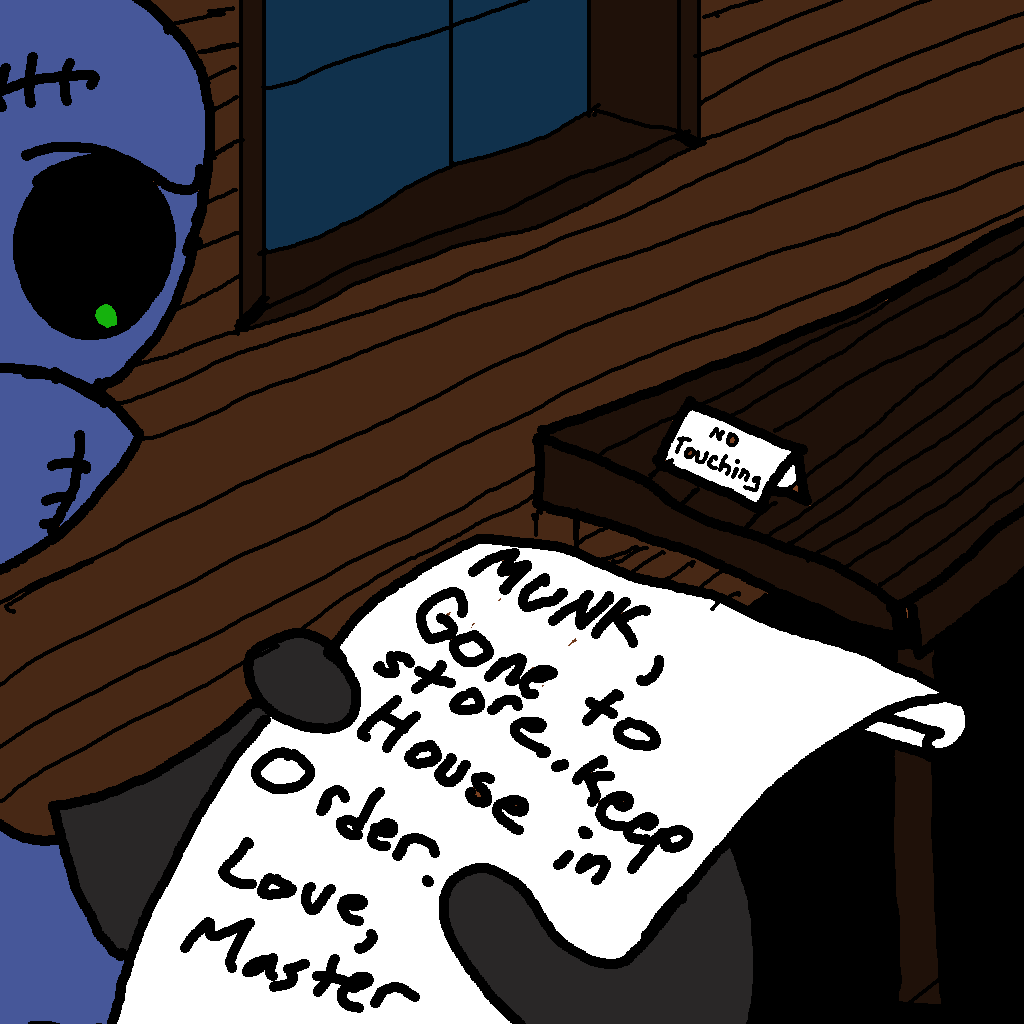 NO
Touching
MUNK,
Gone to
store. Keep
House in
Order.
Love,
Master